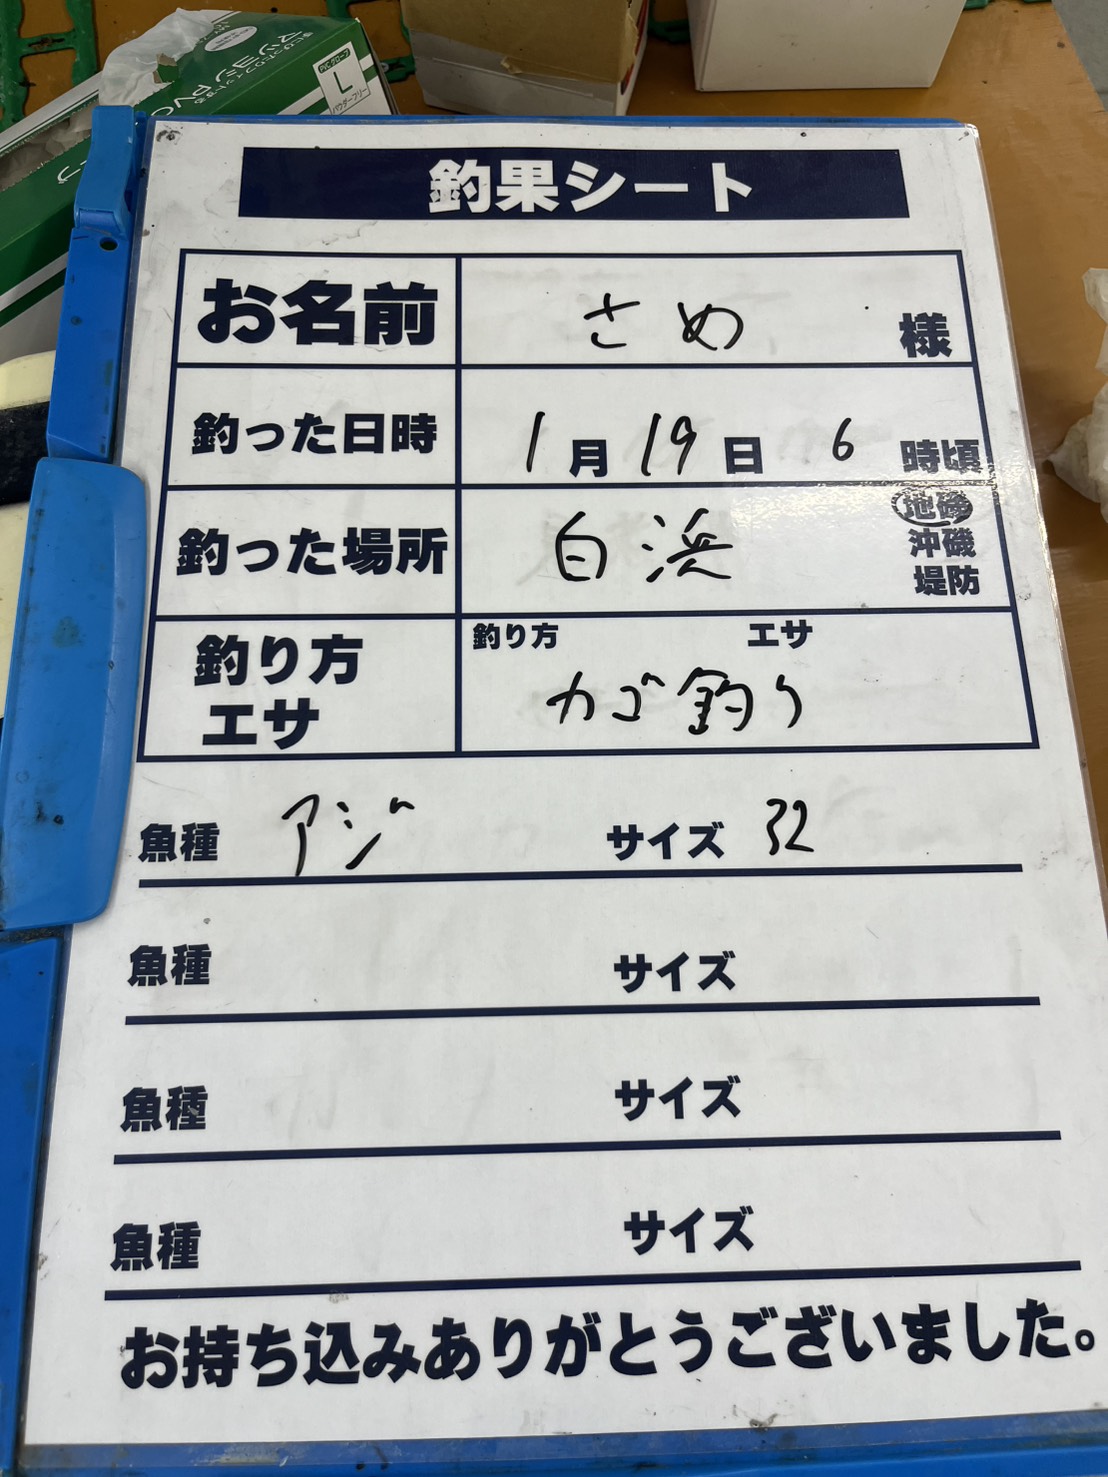 PVCグローブ
L
パウダーフリー
釣果シート
お名前 さめ 様
釣った日時 1月19日 6時頃
釣った場所 白浜 地磯
沖磯
堤防
釣り方 エサ
釣り方
エサ
カゴ釣り
魚種 アジ サイズ 32
魚種 サイズ
魚種 サイズ
魚種 サイズ
お持ち込みありがとうございました。